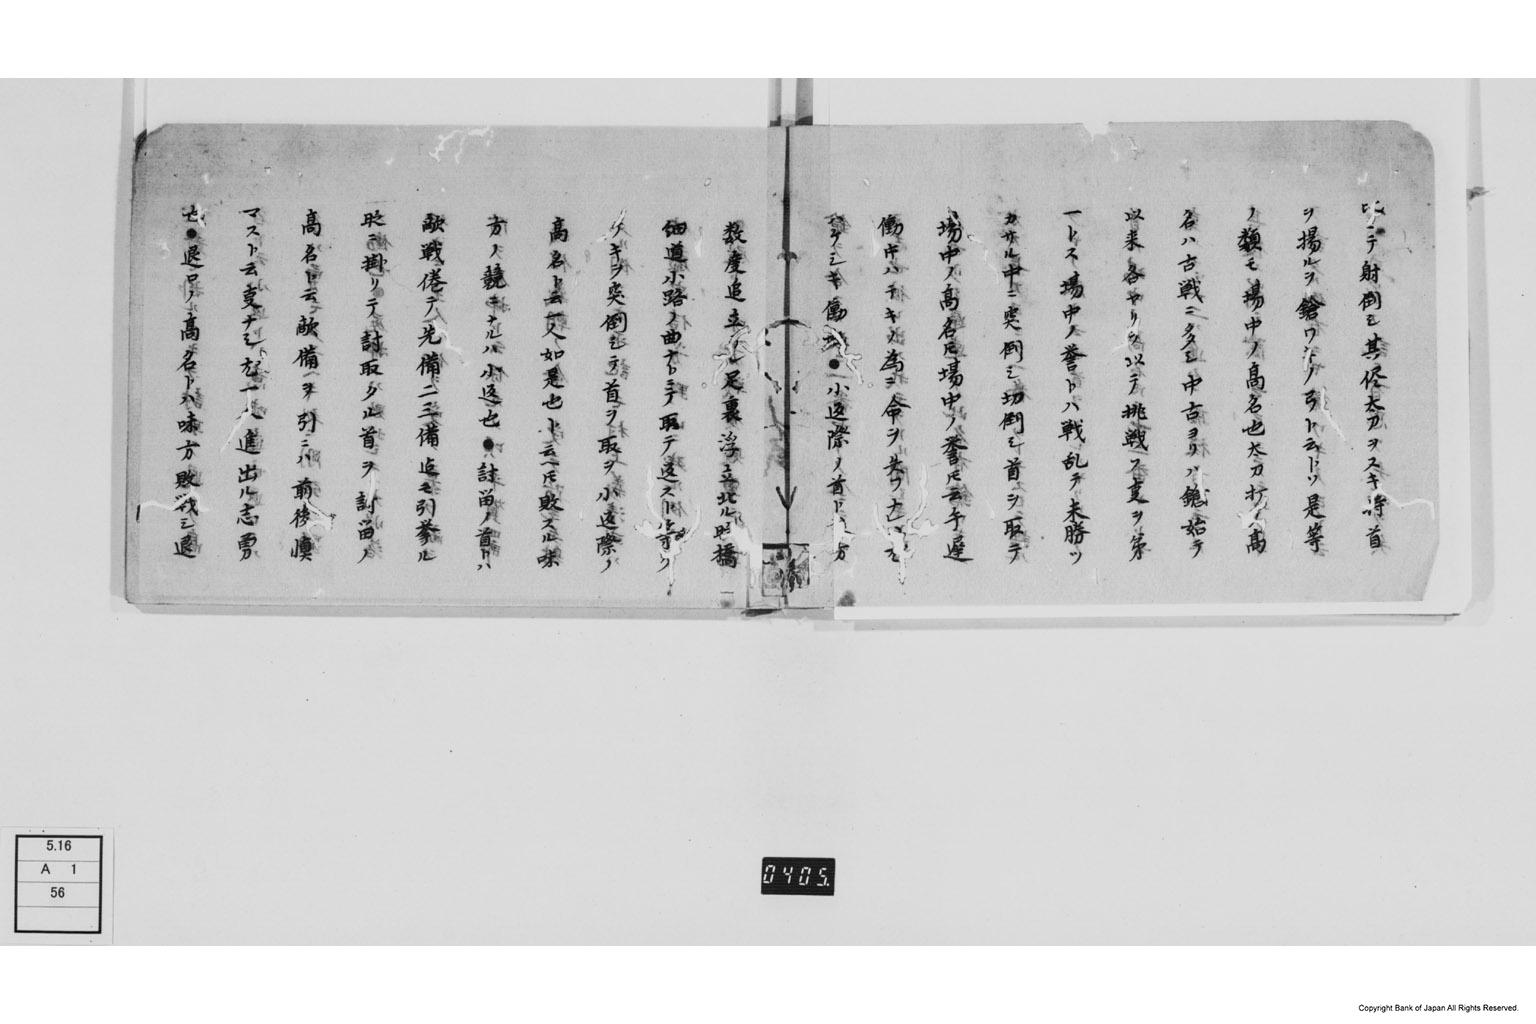 テ射倒シ其侭太刀ヲスキ首
ヲ揚ルヲ鎗ワキノ弓ト云トソ是等
ノ類モ場中ノ高名也太刀打ノ高
名ハ古戦ニ多シ中古ヨリハ鎗始テ
以来各ヤリヲ以テ挑戦フ事ヲ第
一トス場中ノ誉トハ戦乱テ未勝ツ
カサル中ニ突倒シ切倒シ首ヲ取テ
場中ノ高名ヒ場中ノ誉ヒ云
働キハテキノ為ニ命ヲ失フ
シキ働●小返際ノ首ト方
数度追立ル足裏浮立北ル時橋
細道小路ノ曲ニテ取テ返ス
テキヲ突倒シテ首ヲ取ヲ小返際ノ
高名ト云一人如是也ト云ヒ敗スル味
方ノ競ニナルハ小返也●討留ノ首トハ
敵戦倦テ先備二三備迄モ引挙ル
所ニ掛リテ討取タル首ヲ討留ノ
高名ト云敵備ヲ引ニハ前後慎
マスト云事ナシ左進出ル志勇
也●退口ノ高名トハ味方敗戦シ退
5.16
A 1
56
0405
Copyright Bank of Japan All Rights Reserved.